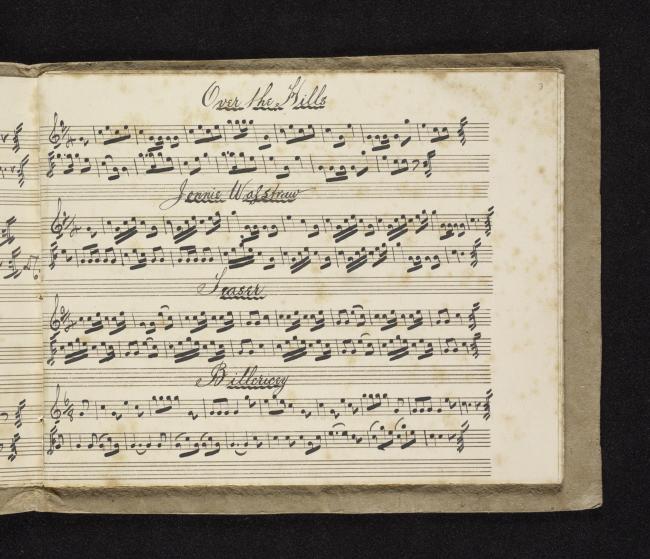 3
Over the Hills
Jennie Wagstraw
Teaser
Billericey